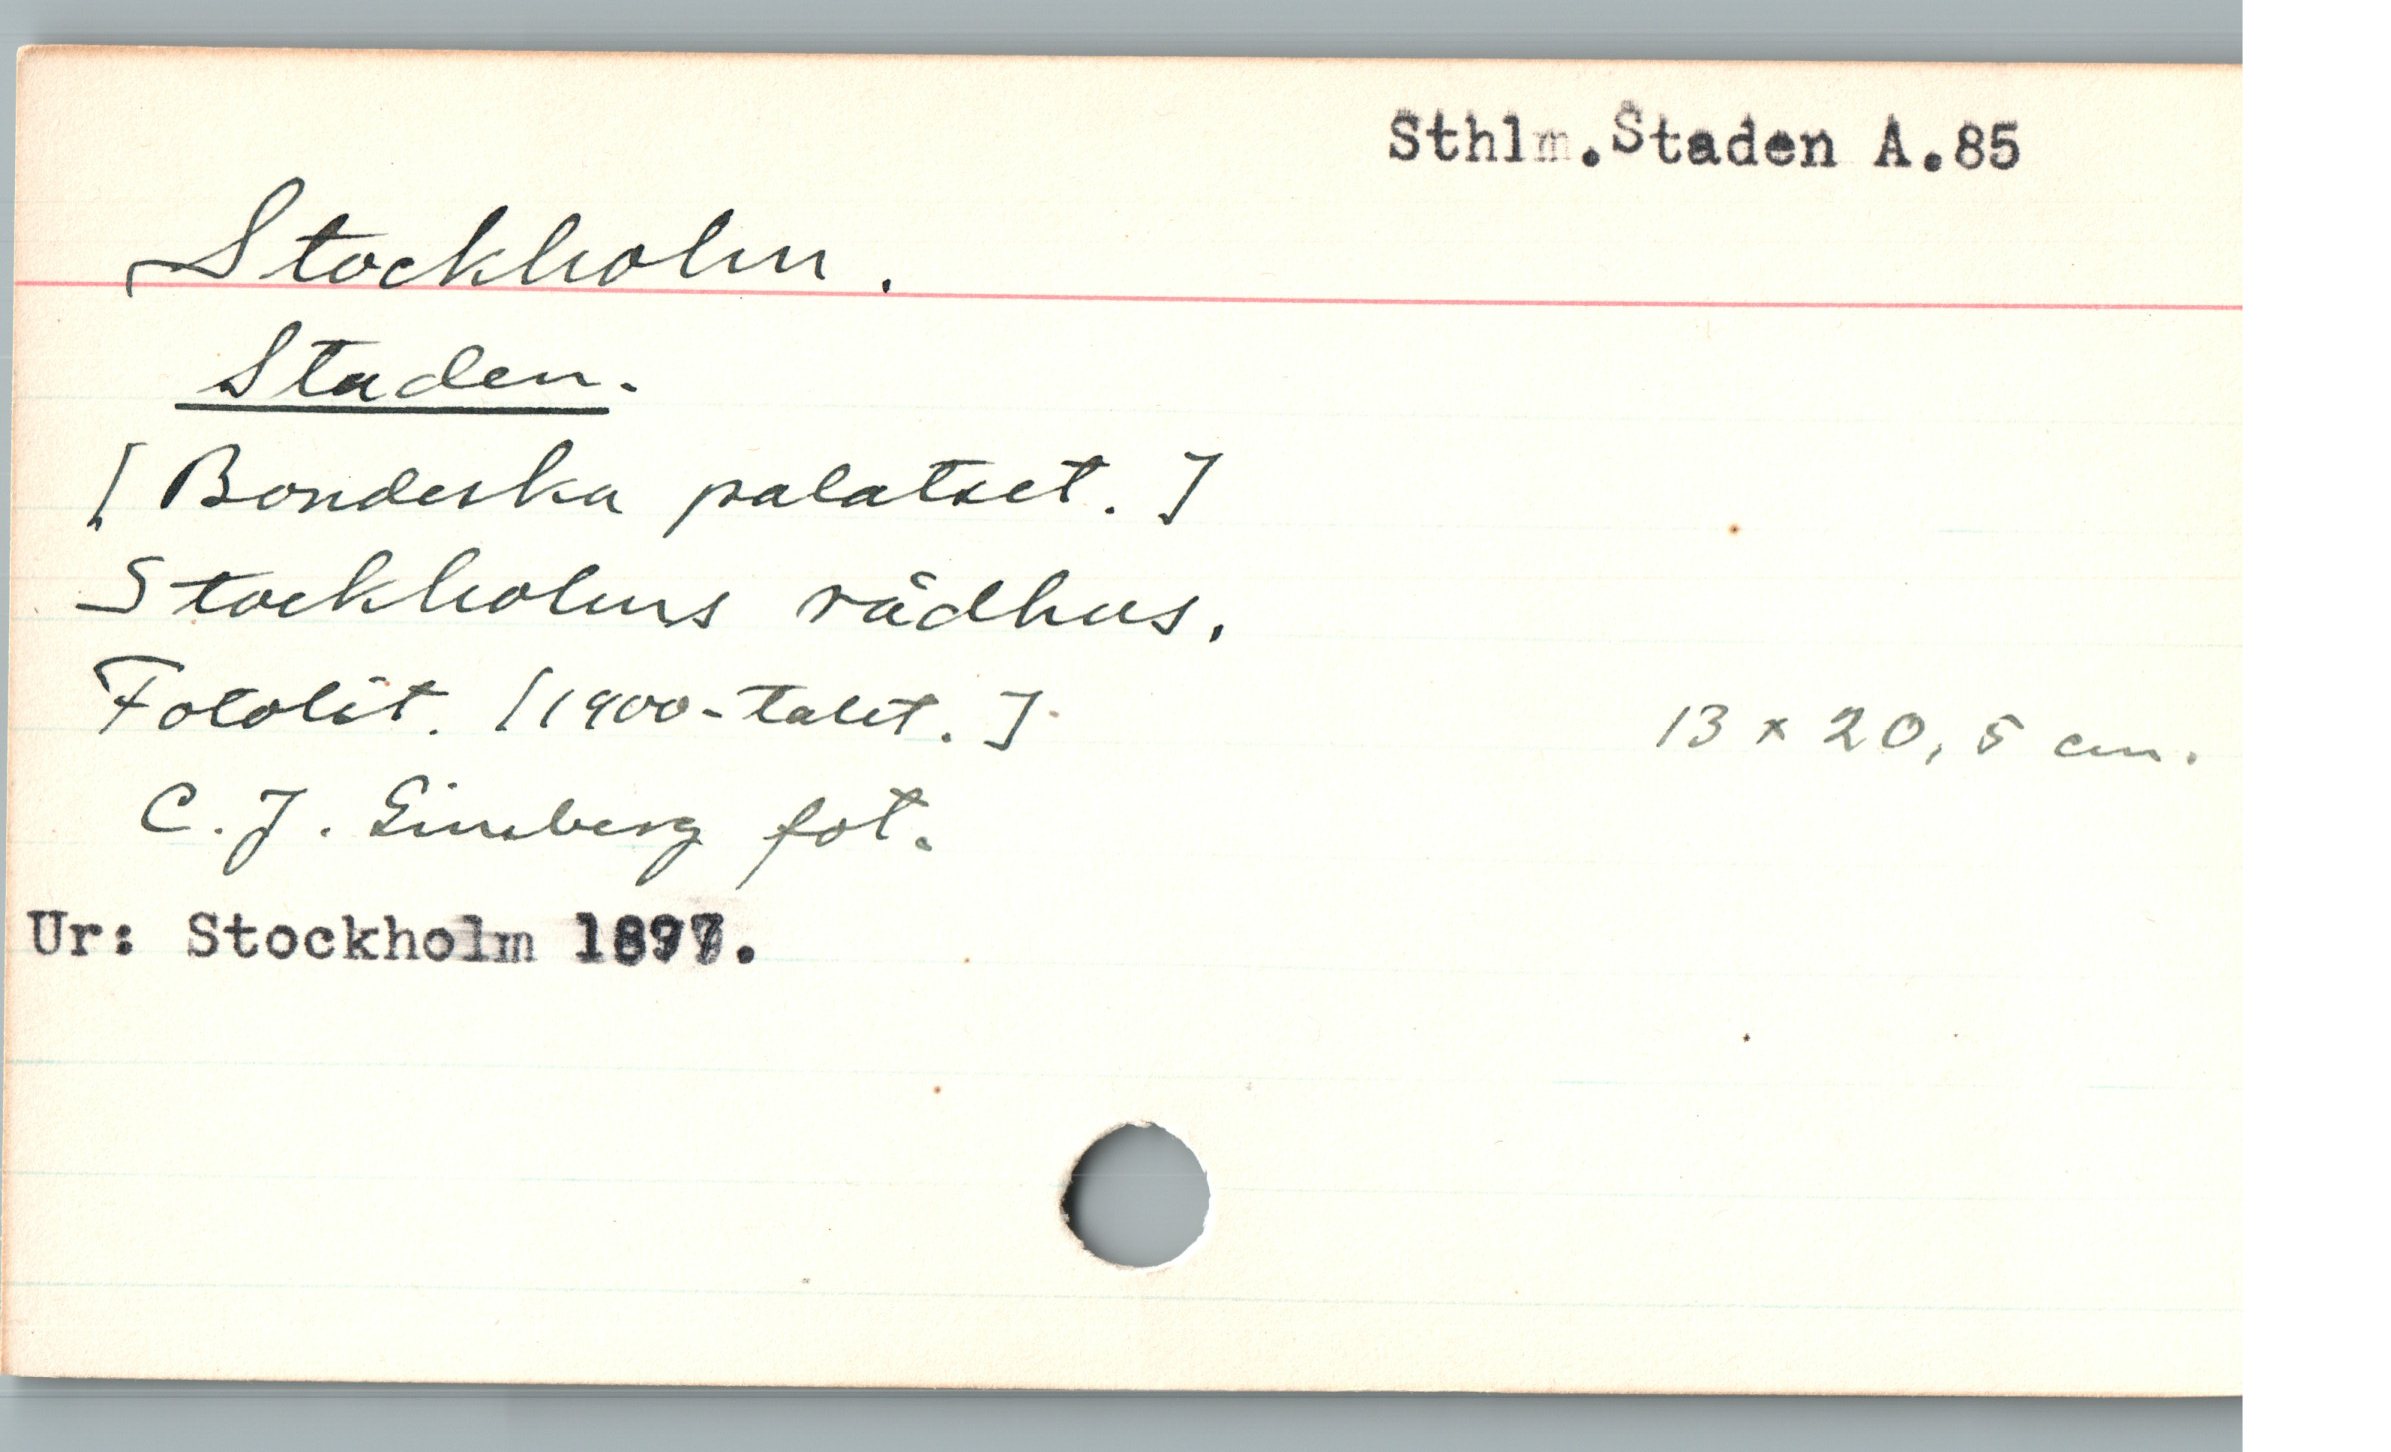 Sthlm.Staden A.85
Stockholm.
Staden.
[Bondeska palatset.]
Stockholms rådhus.
Fotolit. [1900-talet.] 13 x 20,5 cm.
C. J. Gimberg fot.
Ur: Stockholm 1897.